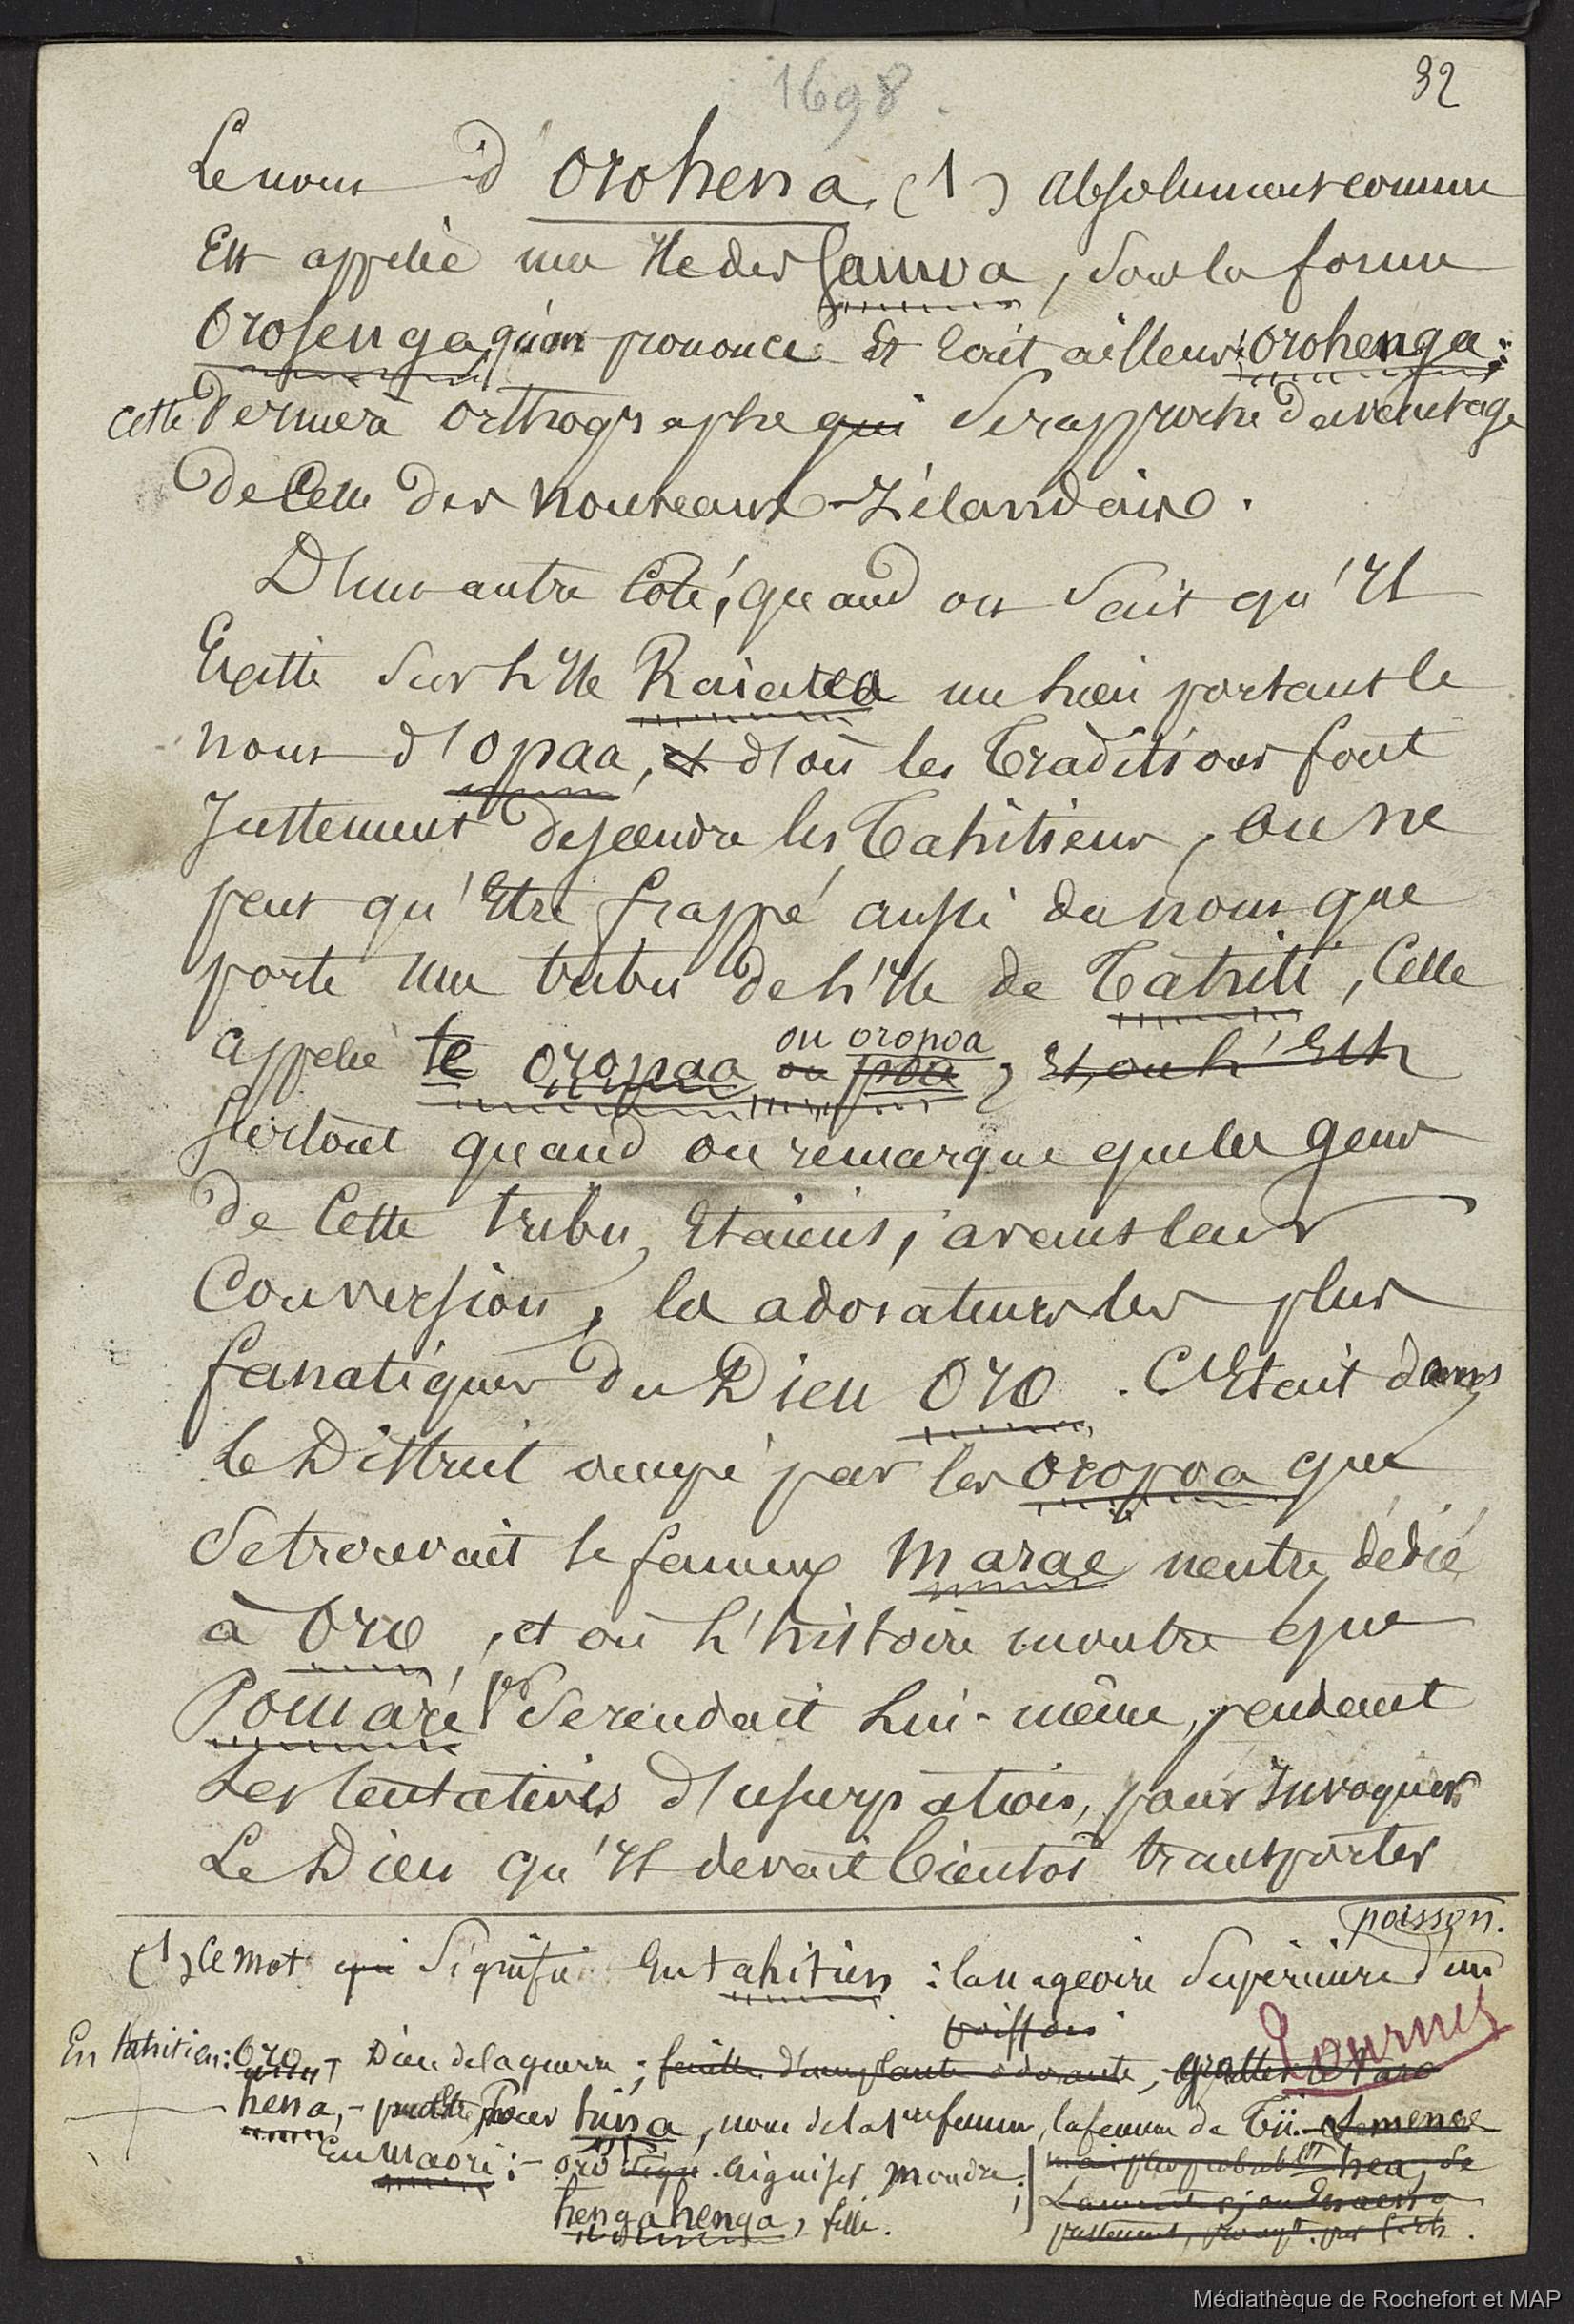 1698.
32
Le nom d'Orohena (1) absolument comme
Est appelée une Ile des Samoa, sous la forme
Orosenga, qu'on prononce Et Ecrit ailleurs: orohenga:
cette Dernière orthographe qui se rapproche Davantage
de celle des Nouveaux-Zélandais.
D'un autre côté, quand on sait qu'Il
Existe sur l'Ile Raiatea un lieu portant le
nom d'opaa, et d'où les Traditions font
Justement descendre les Tahitiens, on ne
peut qu'Etre frappé aussi du nom que
porte une tribu de l'Ile de Tahiti, Celle
ou oropoa
appelée te oropaa ou poa, Et, on l'Est
surtout quand on remarque que les gens
de Cette tribu, Etaient, avant leur
Conversion, les adorateurs les plus
fanatiques du Dieu Oro. C'Etait dans
le District occupé par les oropoa que
se trouvait le fameux Marae neutre, dédié
à Oro, et où l'histoire montre que
Pomaré 1er se rendait lui-même, pendant
Les tentatives d'usurpation, pour Invoquer
Le Dieu qu'Il devait bientôt transporter
poisson.
(1) Ce mot qui signifie En tahitien: la nageoire supérieure d'un
poisson
Tournez
En tahitien: oro, Dieu de la guerre; feuille d'une plante odorante, gratter le taro
hena, - peutEtre pour hina, nom de la 1ère femme, la femme de Tii. - Semence
En Maori: - oro signe. aiguiser, moudre; mais plus probablt hea, de
hengahenga, fille.